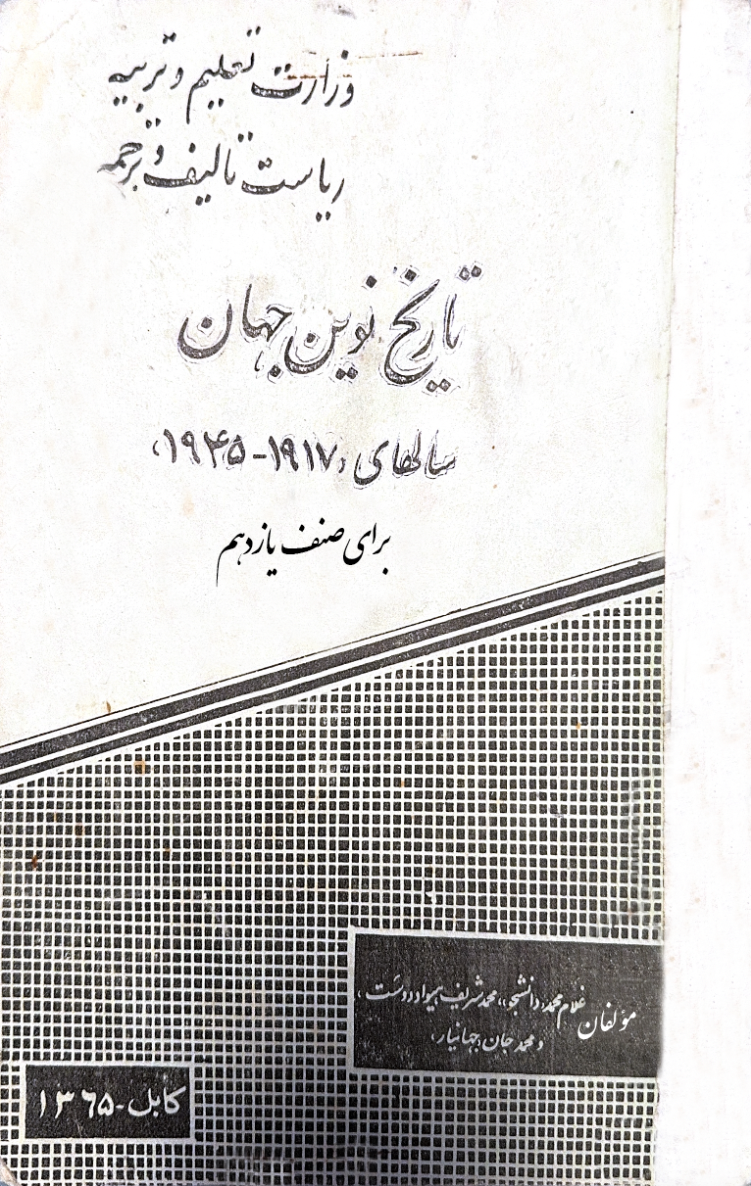 وزارت تعلیم و تربیه
ریاست تألیف و ترجمه
تاریخ نوین جهان
سالهای (۱۹۱۷-۱۹۴۵)
برای صنف یازدهم
مؤلفان غلام محمد «دانشجو» محمد شریف هیواد دوست،
و محمد جان «جهانیار»
کابل - ۱۳۶۵